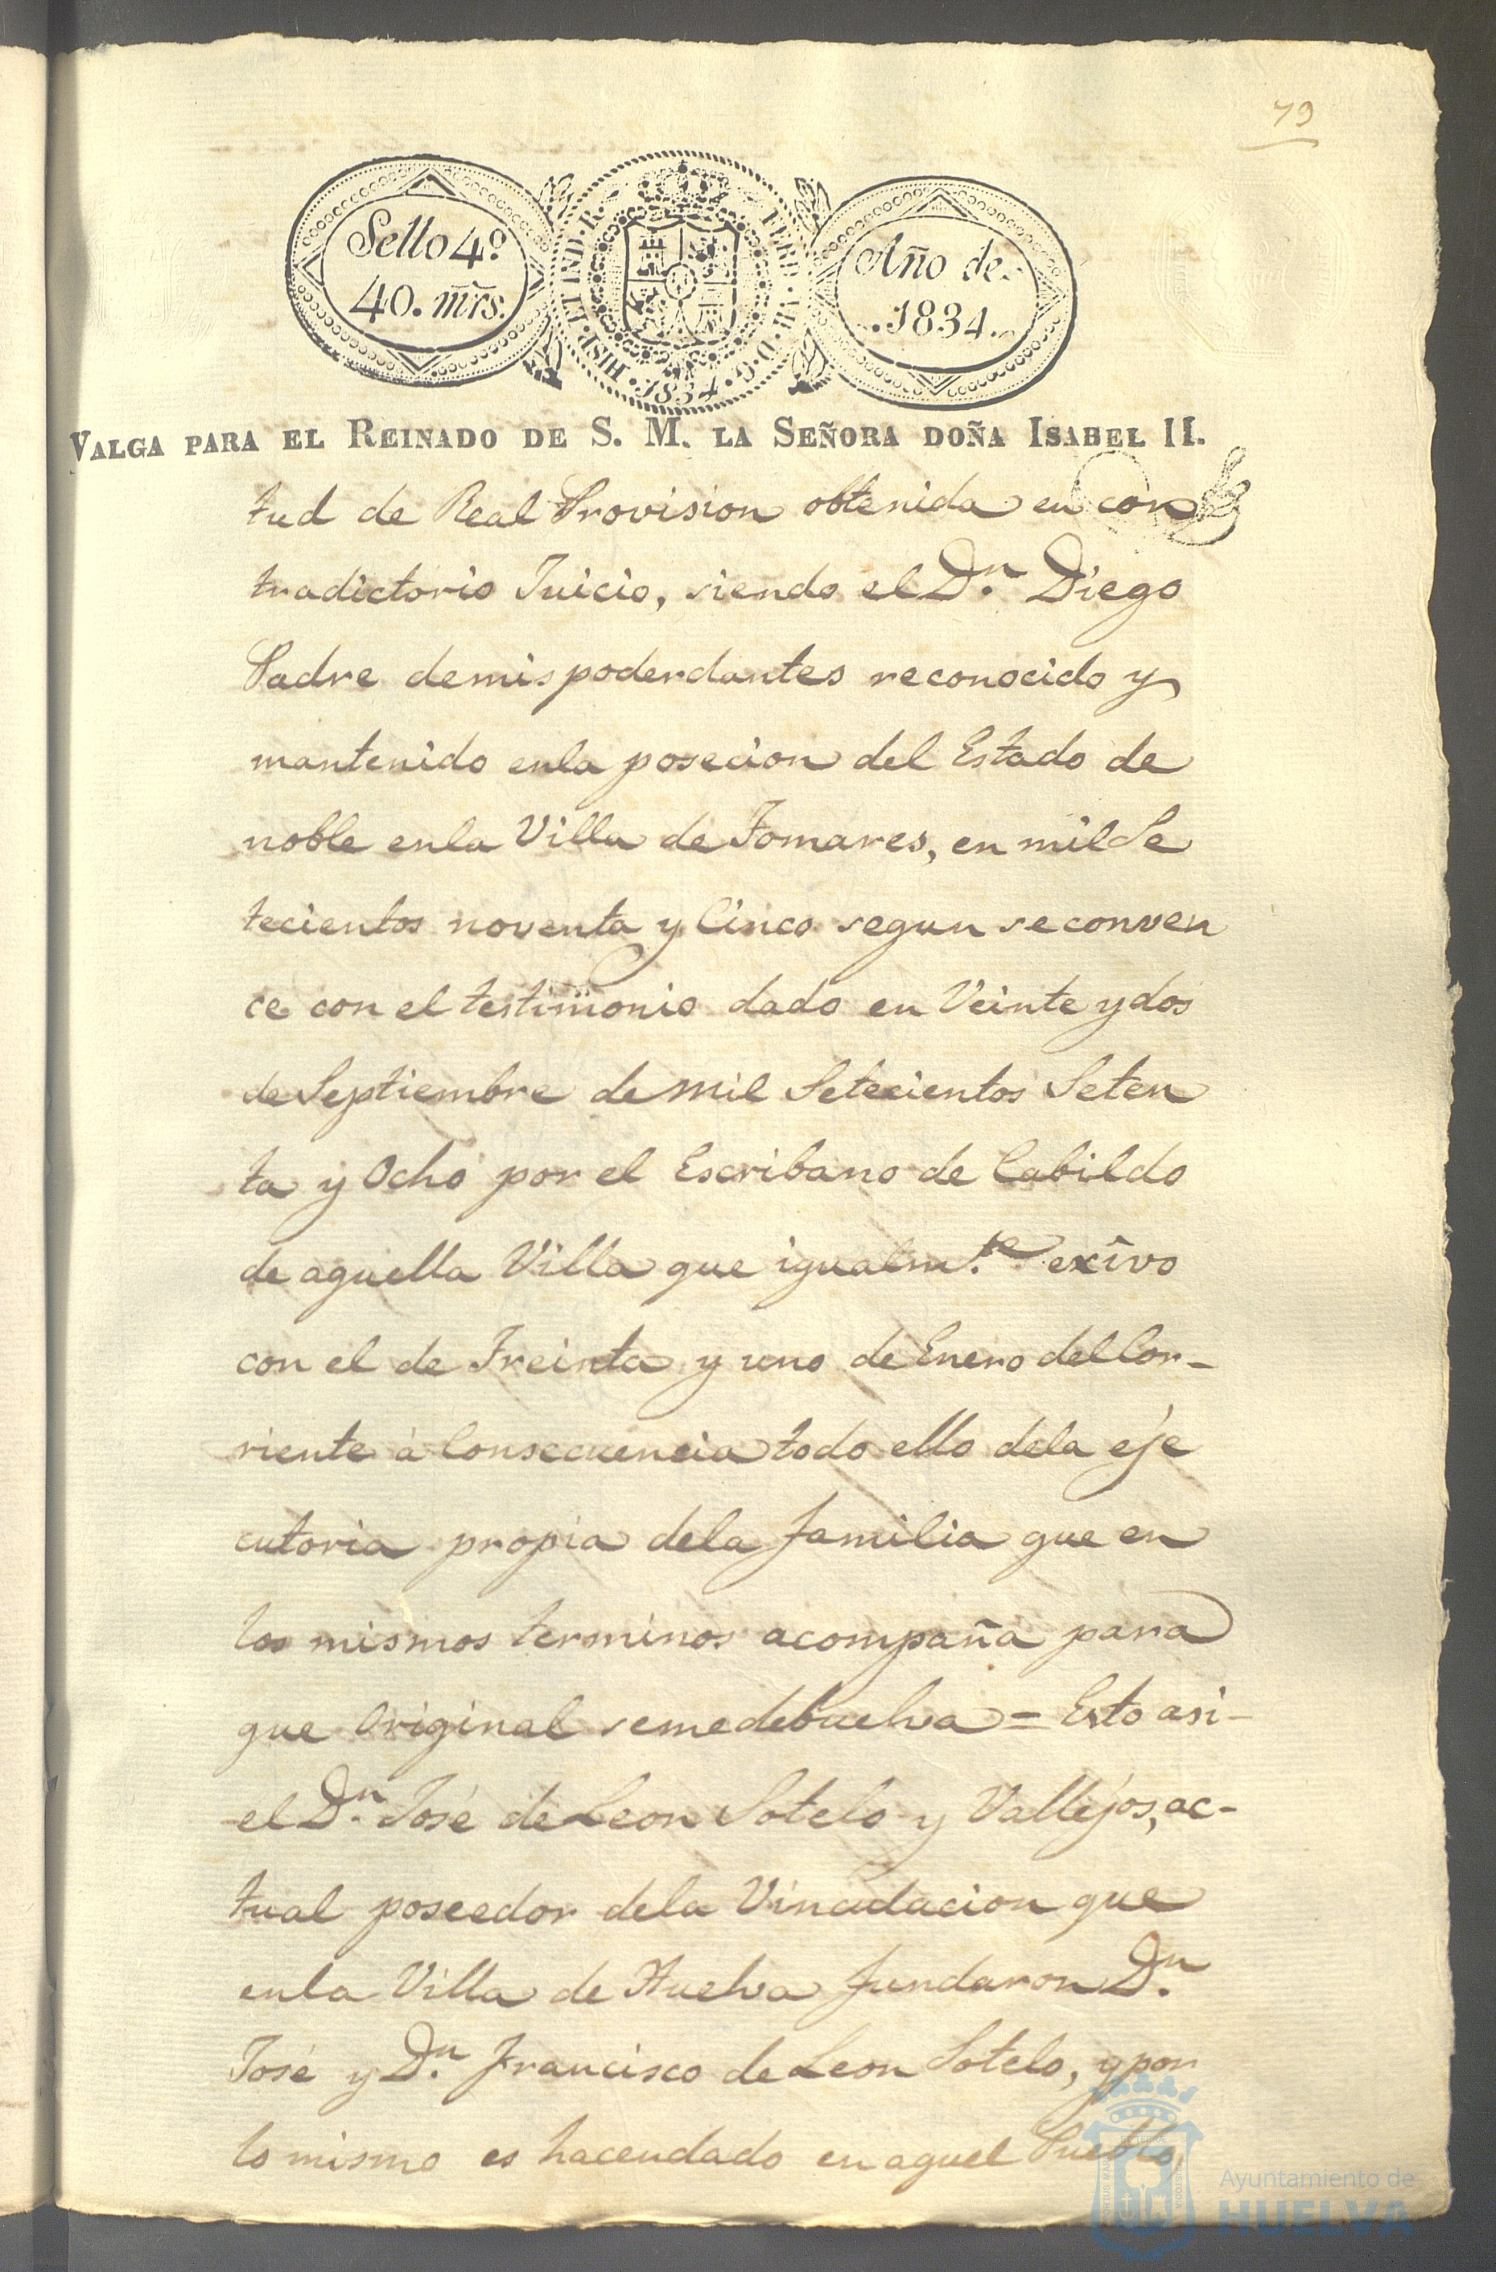 79
Sello 4º
40. mrs.
HISP. ET IND. R.
FERD. VII. D. G.
1834
Año de
1834.
VALGA PARA EL REINADO DE S. M. LA SEÑORA DOÑA ISABEL II.
tud de Real Provision obtenida en con
tradictorio Juicio, siendo el Dn. Diego
Padre demis poderdantes reconocido y
mantenido enla posecion del Estado de
noble enla Villa de Tomares, en mil Se
tecientos noventa y Cinco segun se conven
ce con el testimonio dado en Veinte y dos
de Septiembre de mil Setecientos Seten
ta y Ocho por el Escribano de Cabildo
de aquella Villa que igualm.te exîvo
con el de Treinta y uno de Enero del Cor-
riente à Consecuencia todo ello dela eje
cutoria propia dela familia que en
los mismos terminos acompaña para
que Original semedebuelva = Esto asi-
el Dn. José de Leon Sotelo y Vallejos, ac-
tual poseedor dela Vinculacion que
enla Villa de Huelva fundaron Dn.
José y Dn. Francisco de Leon Sotelo, y por
lo mismo es hacendado en aquel Pueblo,
Ayuntamiento de
HUELVA